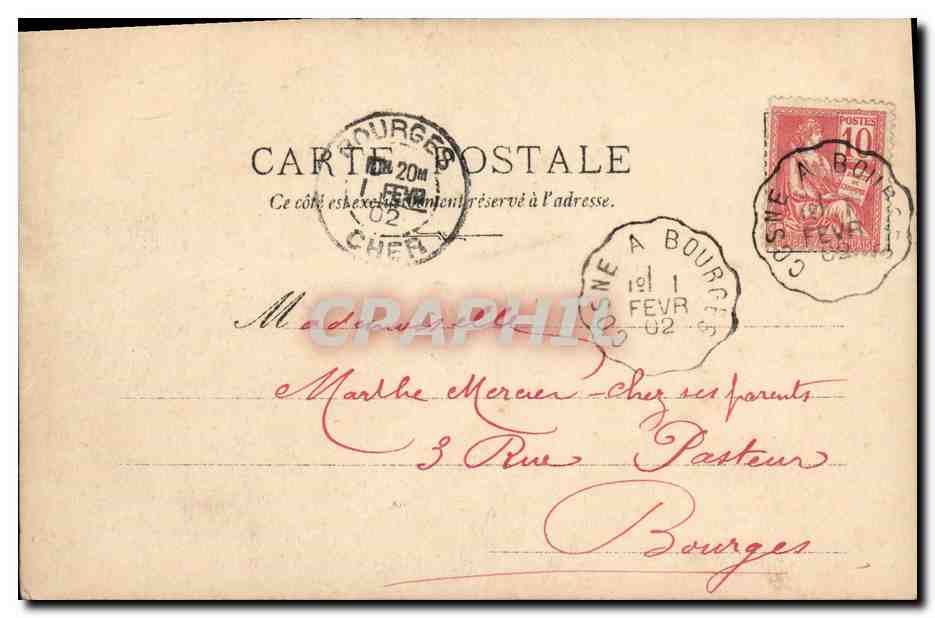 POSTES
10
COSNE A BOURGES
1 FEVR
02
BOURGES
20M
1 FEVR
02
CHER
CARTE POSTALE
Ce côté est exclusivement réservé à l'adresse.
COSNE A BOURGES
1
FEVR
02
CPAPHIL
Mademoiselle
Marthe Mercier - chez ses parents
3 Rue Pasteur
Bourges